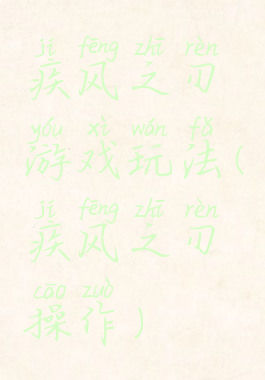 jí fēng zhī rèn
疾风之刃
yóu xì wán fǎ
游戏玩法(
jí fēng zhī rèn
疾风之刃
cāo zuò
操作)